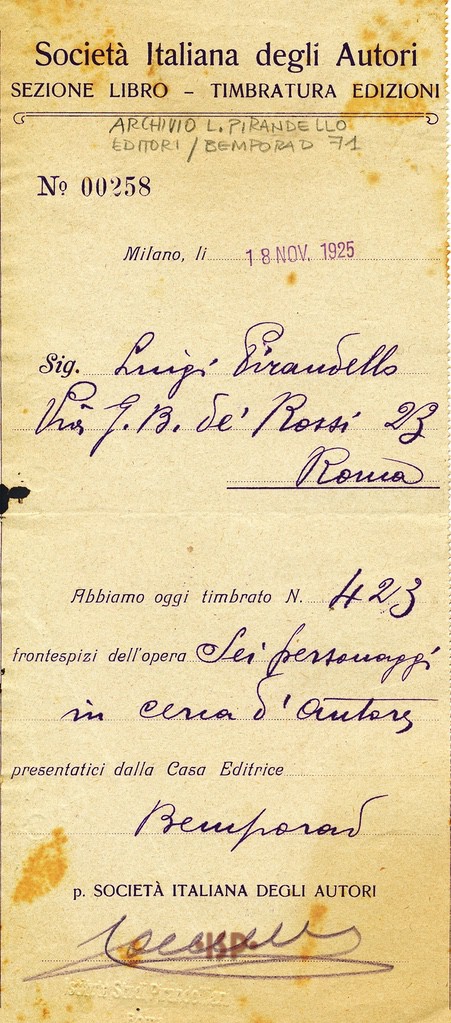 Società Italiana degli Autori
SEZIONE LIBRO – TIMBRATURA EDIZIONI
ARCHIVIO L. PIRANDELLO
EDITORI / BEMPORAD 71
Nº 00258
Milano, li 18 NOV. 1925
Sig. Luigi Pirandello
Via G. B. de' Rossi 23
Roma
Abbiamo oggi timbrato N. 423
frontespizi dell'opera Sei personaggi
in cerca d'autore
presentatici dalla Casa Editrice
Bemporad
p. SOCIETÀ ITALIANA DEGLI AUTORI